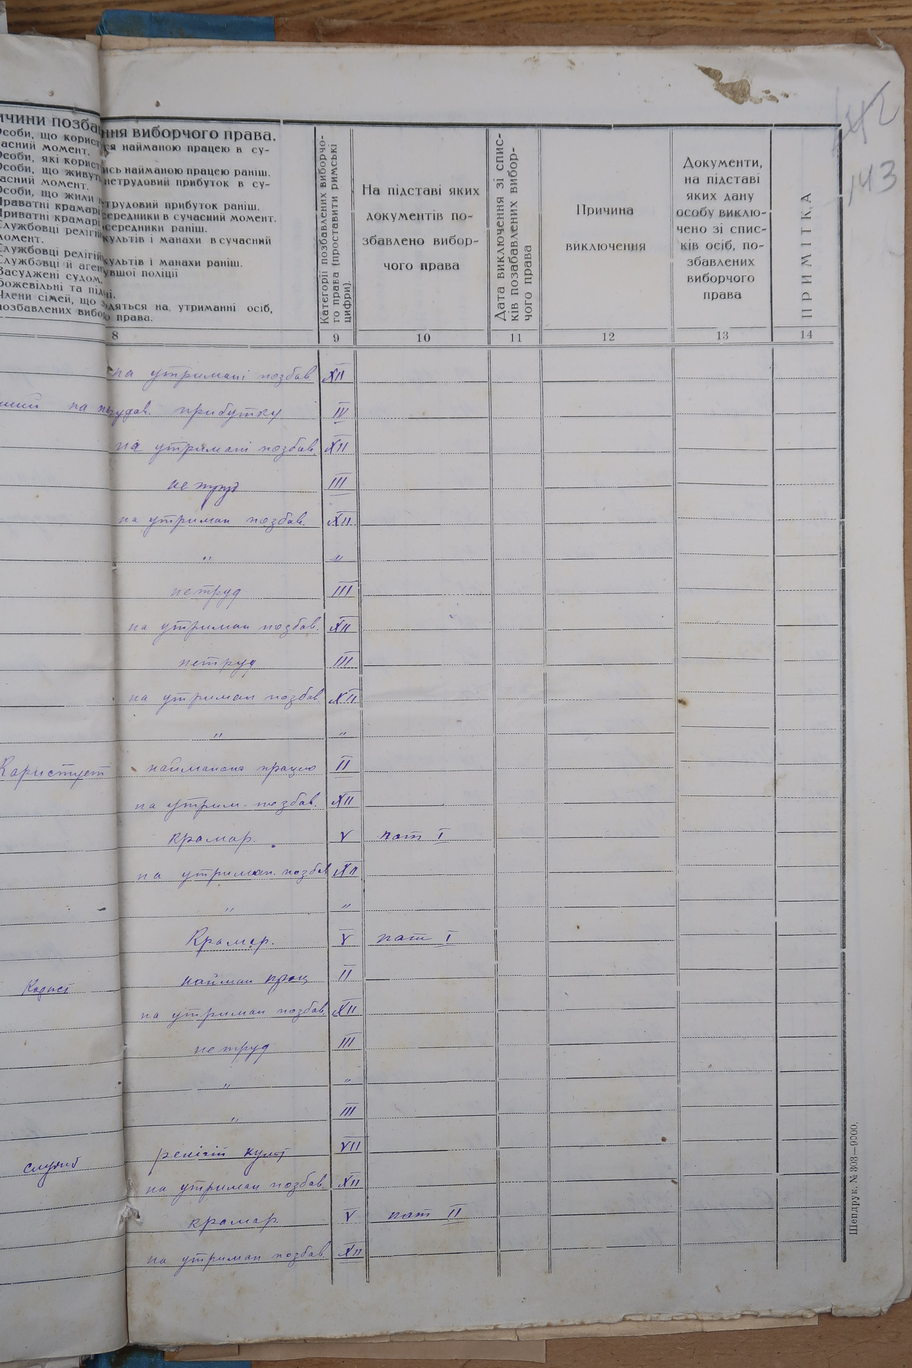 142
143
ичини позба
ння виборчого права.
Особи, що корист
ся найманою працею в су-
часний момент.
Особи, які корист
ись найманою працею раніш.
Особи, що живуть
нетрудовий прибуток в су-
часний момент.
Особи, що жили н
трудовий прибуток раніш.
Приватні крамарі
середники в сучасний момент.
Приватні крамарі
середники раніш.
Службовці релігій
культів і манахи в сучасний
момент.
Службовці релігій
культів і манахи раніш.
Службовці й аген
увшої поліції
Засуджені судом.
Божевільні та під
ні.
Члени сімей, що
дяться на утриманні осіб,
позбавлених вибо
о права.
Категорії позбавлених виборчо-
го права (проставити римські
цифри).
На підставі яких
документів по-
збавлено вибор-
чого права
Дата виключення зі спис-
ків позабавлених вибор-
чого права
Причина
виключення
Документи,
на підставі
яких дану
особу виклю-
чено зі спис-
ків осіб, по-
збавлених
виборчого
права
ПРИМІТКА
8 9 10 11 12 13 14
на утримані позбав XII
на нетрудов. прибутку IV
на утримані позбав. XII
не труд III
на утриман позбав. XII
" "
нетруд III
на утриман позбав. XII
нетруд III
на утриман позбав XII
" "
Користует найманою працею II
на утрим. позбав. XII
крамар. V пат I
на утриман. позбав XII
" "
Крамар. V пат I
Корист найман прац II
на утриман позбав XII
нетруд III
" "
" III
служб релігій культ VII
на утриман позбав XII
крамар V пат II
на утриман позбав. XII
Шепдрук. № 303—9000.